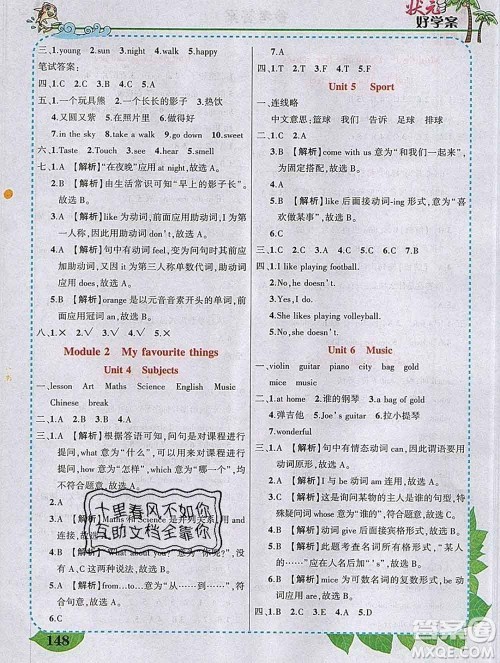 状元
好学案
三、1.young　2.sun　3.night　4.moon　5.happy
笔试答案:
四、1.C　2.C　3.A　4.B　5.A
五、1.一个玩具熊　2.一个长长的影子　3.热饮
4.又圆又紫　5.在照片里　6.躲猫猫
7.in the sky　8.take a walk　9.go down　10.sweet
六、1.Taste　2.Touch　3.see　4.hear　5.smell
七、1.A　【解析】“在夜晚”应用 at night,故选 A。
2.B　【解析】由生活常识可知“早上的影子长”。
故选 B。
3.A　【解析】like 为动词,前面应用助动词,I
为第一人称,因此用助动词 do,故选 A。
4.A　【解析】句中有动词 feel,变为一般疑问
句时应用助动词,it 为第三人称单数代词,助
动词应用 does,故选 A。
5.B　【解析】orange 是以元音音素开头的单词,
前面应用冠词 an,故选 B。
八、1.×　2.√　3.×　4.√　5.√
Module 2　My favourite things
Unit 4　Subjects
一、lesson　Art　Maths　Science　English　Music
Chinese　break
二、1.B　2.C　3.A　4.A　5.B
三、1.A　【解析】根据答语可知,问句是对课程进行
提问,what 意为“什么”,可以用来对课程进行
提问,how 意为“怎样”,which 意为“哪一个”,均
不符合题意,故选 A。
2.A
没有 A、C 这两种说法,故选 B。
5.A　【解析】from…to…意为“从……到……”,
符合题意,故选 A。
6.C
十里春风不如你
互助文档全靠你
148
7.A
四、1.C　2.D　3.B　4.A　5.F　6.E
Unit 5　Sport
一、连线略
中文意思:篮球　我们　告诉　足球　排球
二、1.C　【解析】come with us 意为“和我们一起来”,
为固定搭配,故选 C。
2.A
3.B　【解析】like 后面接动词-ing 形式,意为“喜
欢做某事”,故选 B。
4.A
5.B
三、1.B　2.C　3.C　4.C　5.A
四、1.I like playing football.
2.B
3.Yes, I do.
4.No, he doesn't.
5.She likes playing volleyball.
6.No, she doesn't.
Unit 6　Music
一、violin　guitar　piano　city　bag　gold
mice　music　magic
二、1.at home　2.谁的钢琴
3.弹吉他　4.Joe's guitar　5.拉小提琴
6.wonderful
三、1.A　【解析】句中有情态动词 can,后面应用
动词原形,故选 A。
2.A　【解析】I 与 be 动词 am 搭配,故选 A。
3.B　【解析】这是询问某物的主人是谁的句型,
特殊疑问词 whose 意为“谁的”,故选 B。
4.A　【解析】动词 give 后面接宾格形式,故
选 A。
5.B　【解析】此题考查名词所有格形式,“某人
的……”应在人名后加's,故选 B。
6.B　【解析】mice 为可数名词的复数形式,be
动词应用 are,故选 B。
四、1.D　2.C　3.B　4.A
答案圈
MXQE.COM